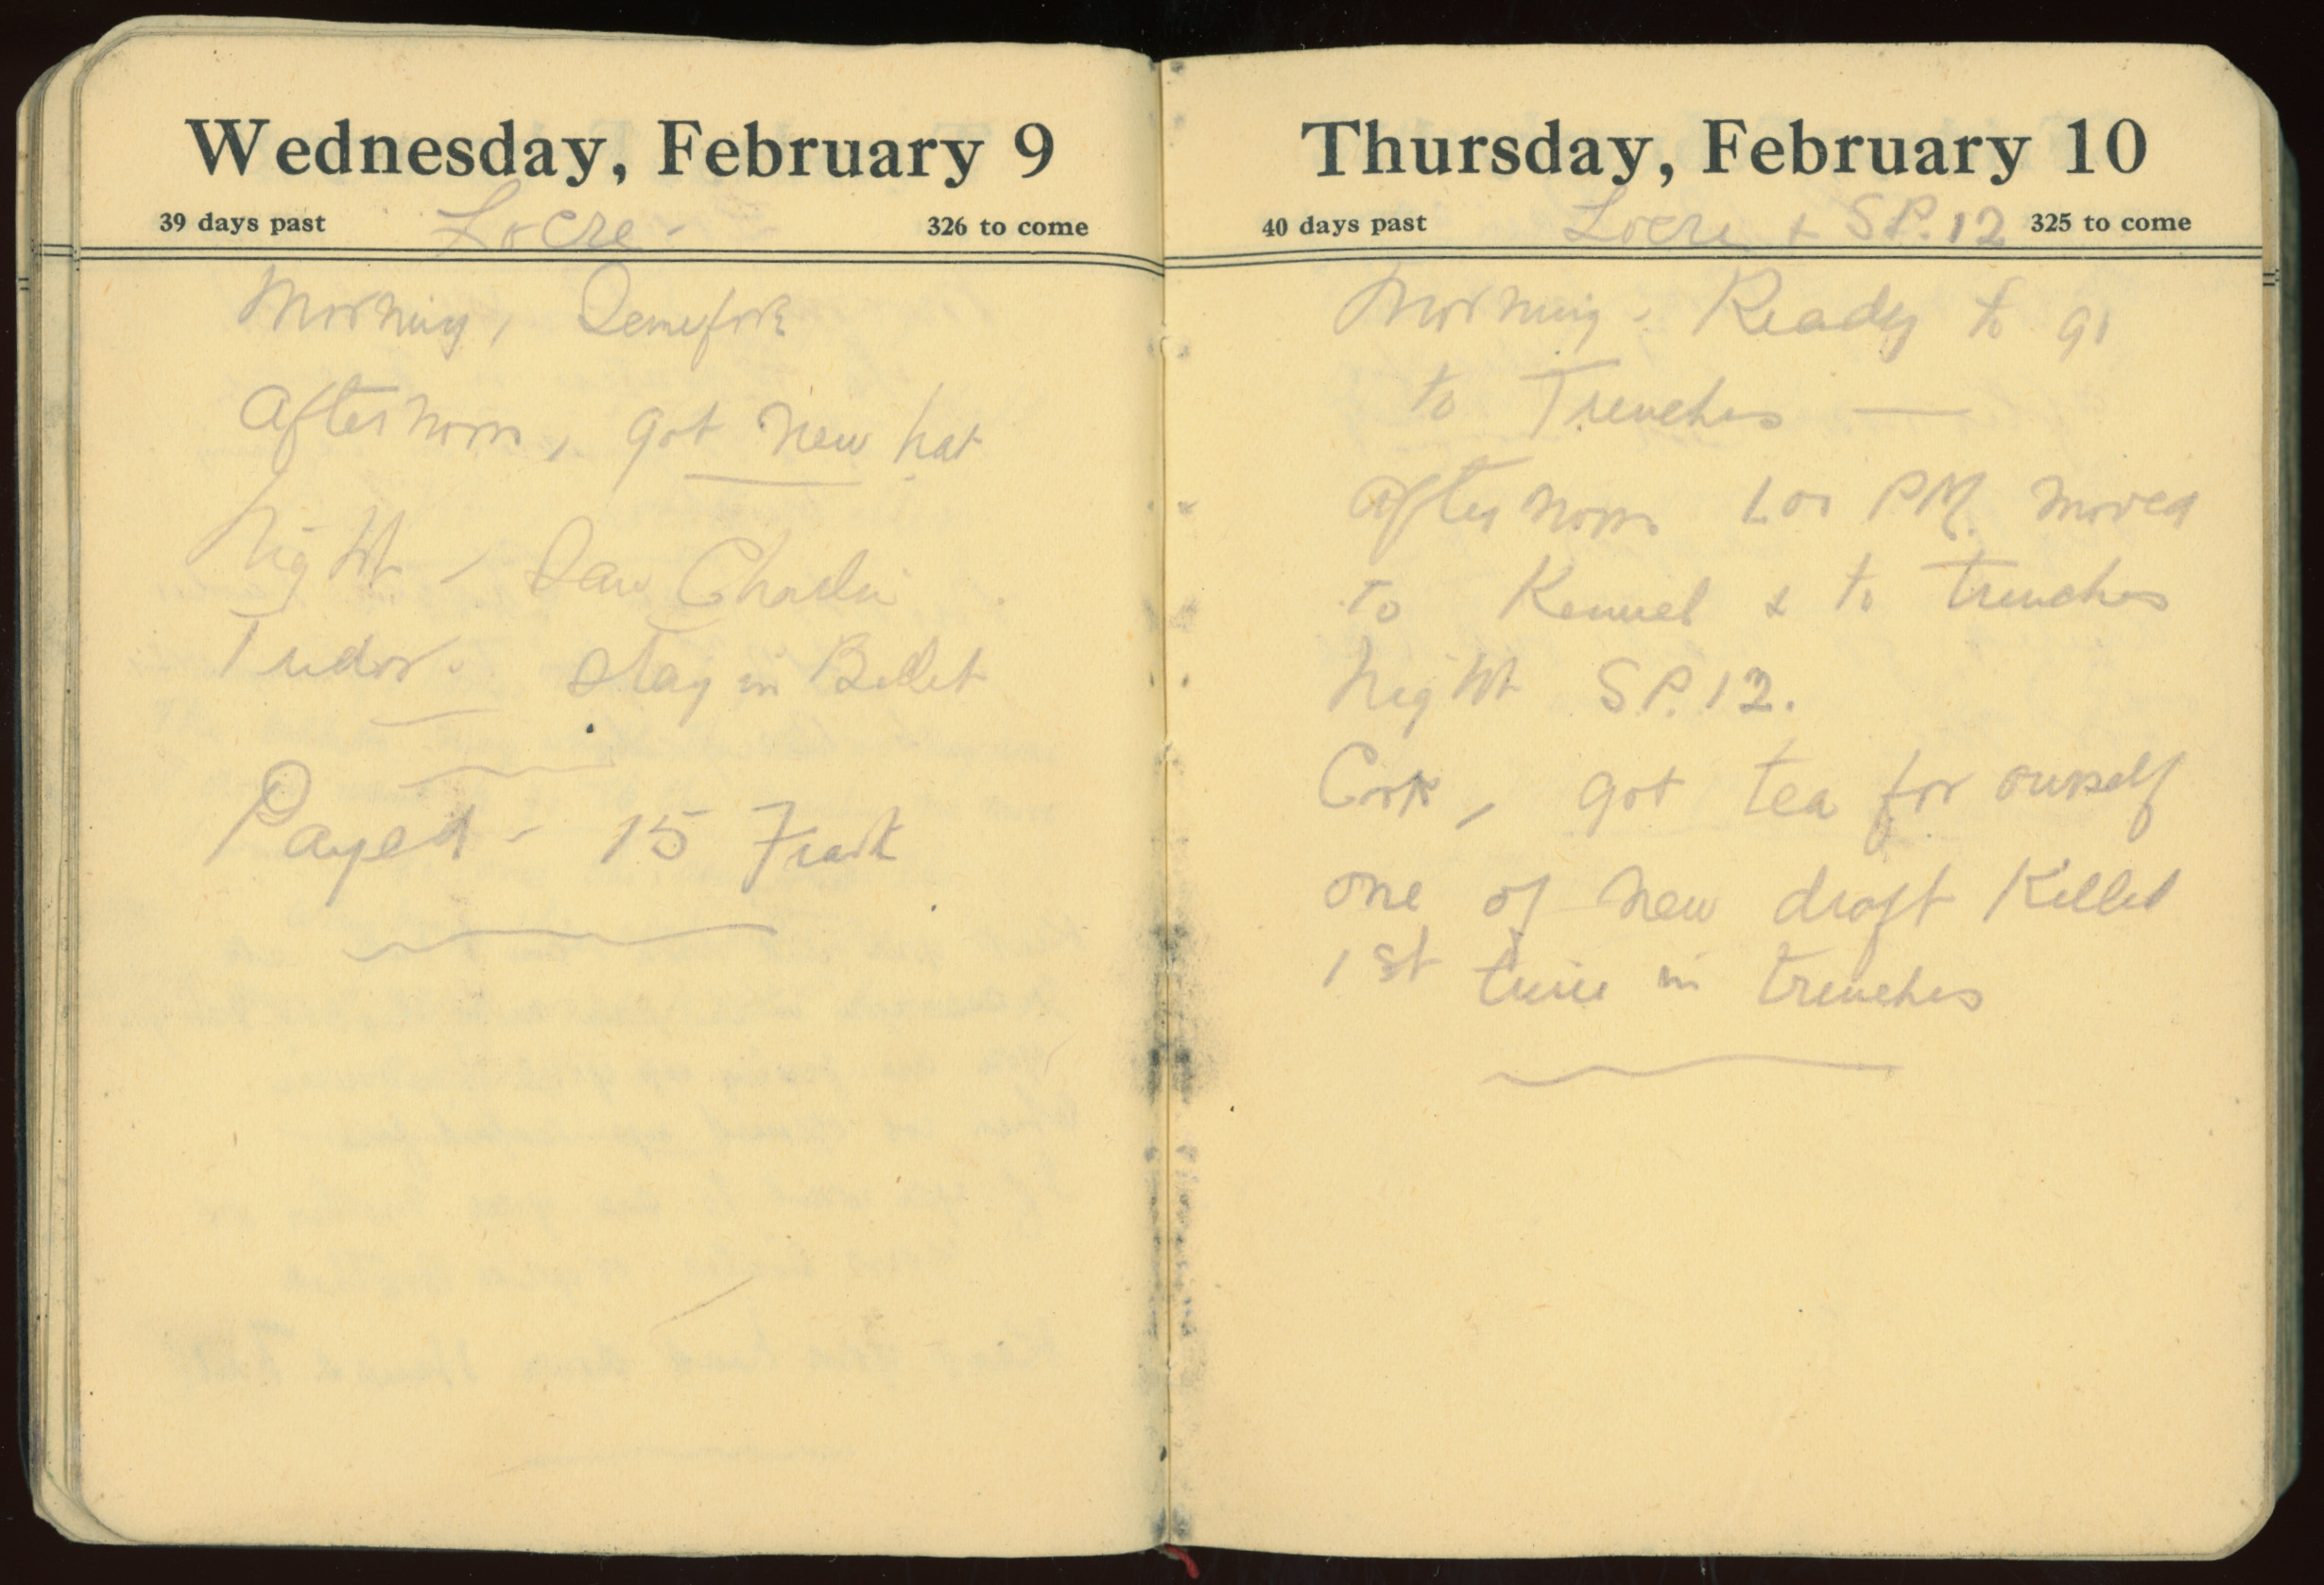 Wednesday, February 9
39 days past Locre - 326 to come
Morning,
Afternoon, got new hat
Night - Saw Charlie
Tudor. Stay in Billet
Payed - 15
Thursday, February 10
40 days past Locre + S.P.12 325 to come
Morning - Ready to go
to Trenches —
Afternoon 1.00 PM. moved
to Kemmel & to trenches
Night S.P.12.
Cook, got tea for ourself
one of new draft killed
1st time in trenches